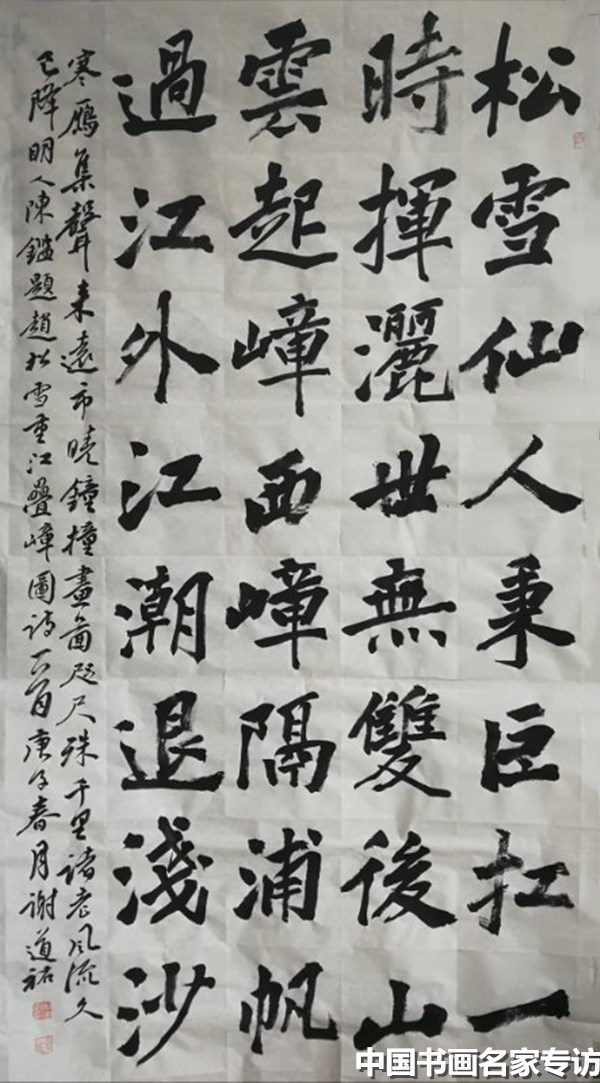 松雪仙人秉巨扛一
時揮灑世無雙後山
雲起嶂西嶂隔浦帆
過江外江潮退淺沙
寒鴈集聲来遠市曉鐘撞畫啚咫尺殊千里諸老風流久
已降明人陳鑑題趙松雪重江疊嶂圖詩一首庚子春月謝道祐
中国书画名家专访